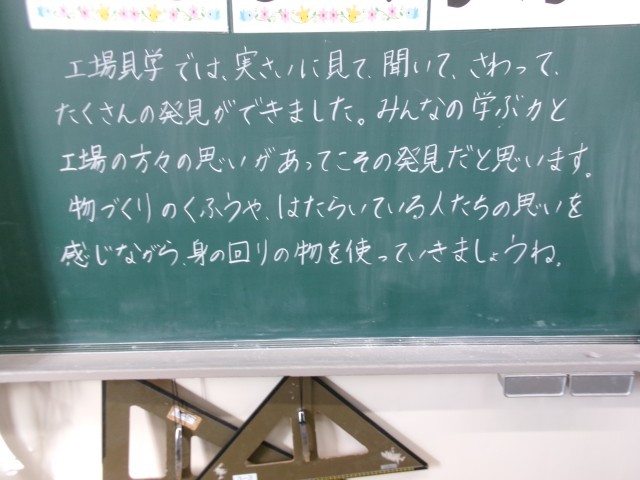 工場見学では、実さいに見て、聞いて、さわって、
たくさんの発見ができました。みんなの学ぶ力と
工場の方々の思いがあってこその発見だと思います。
物づくりのくふうや、はたらいている人たちの思いを
感じながら、身の回りの物を使っていきましょうね。